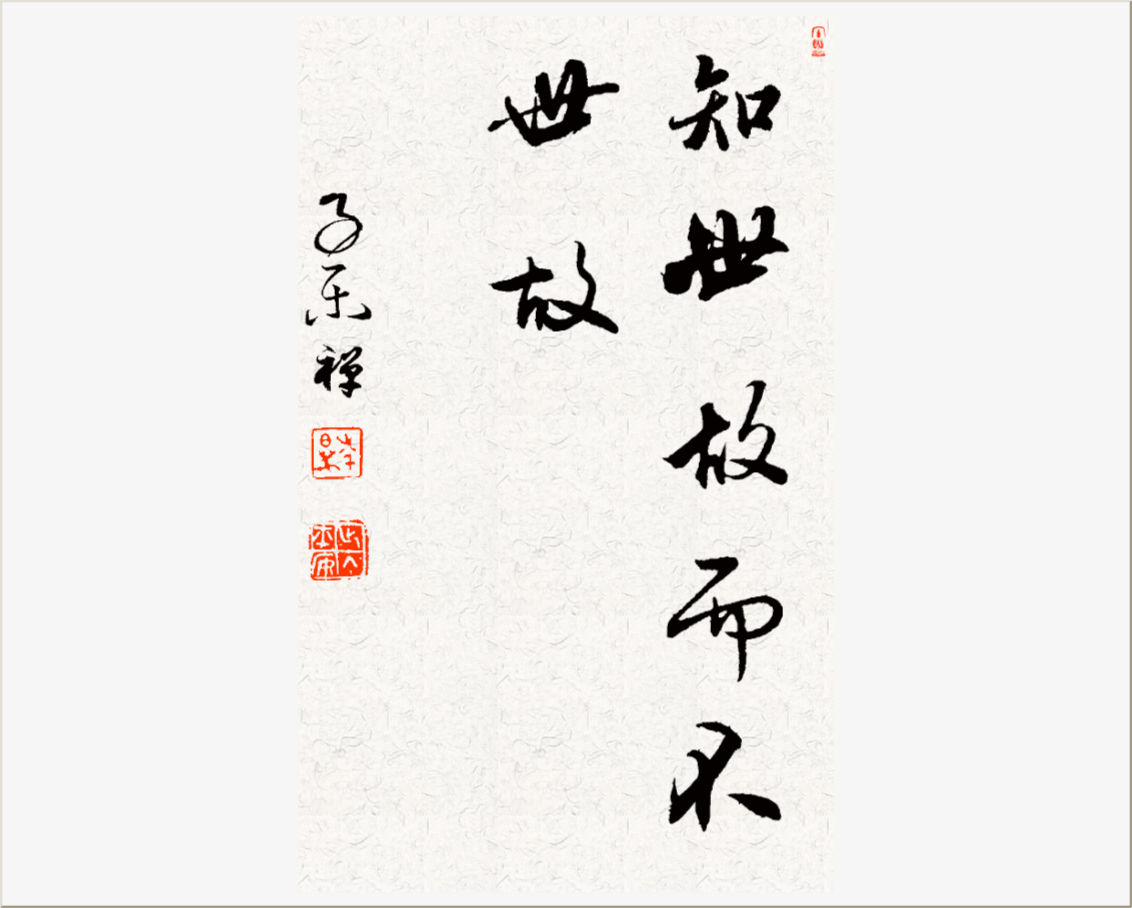 知世故而不
世故
子乐禅